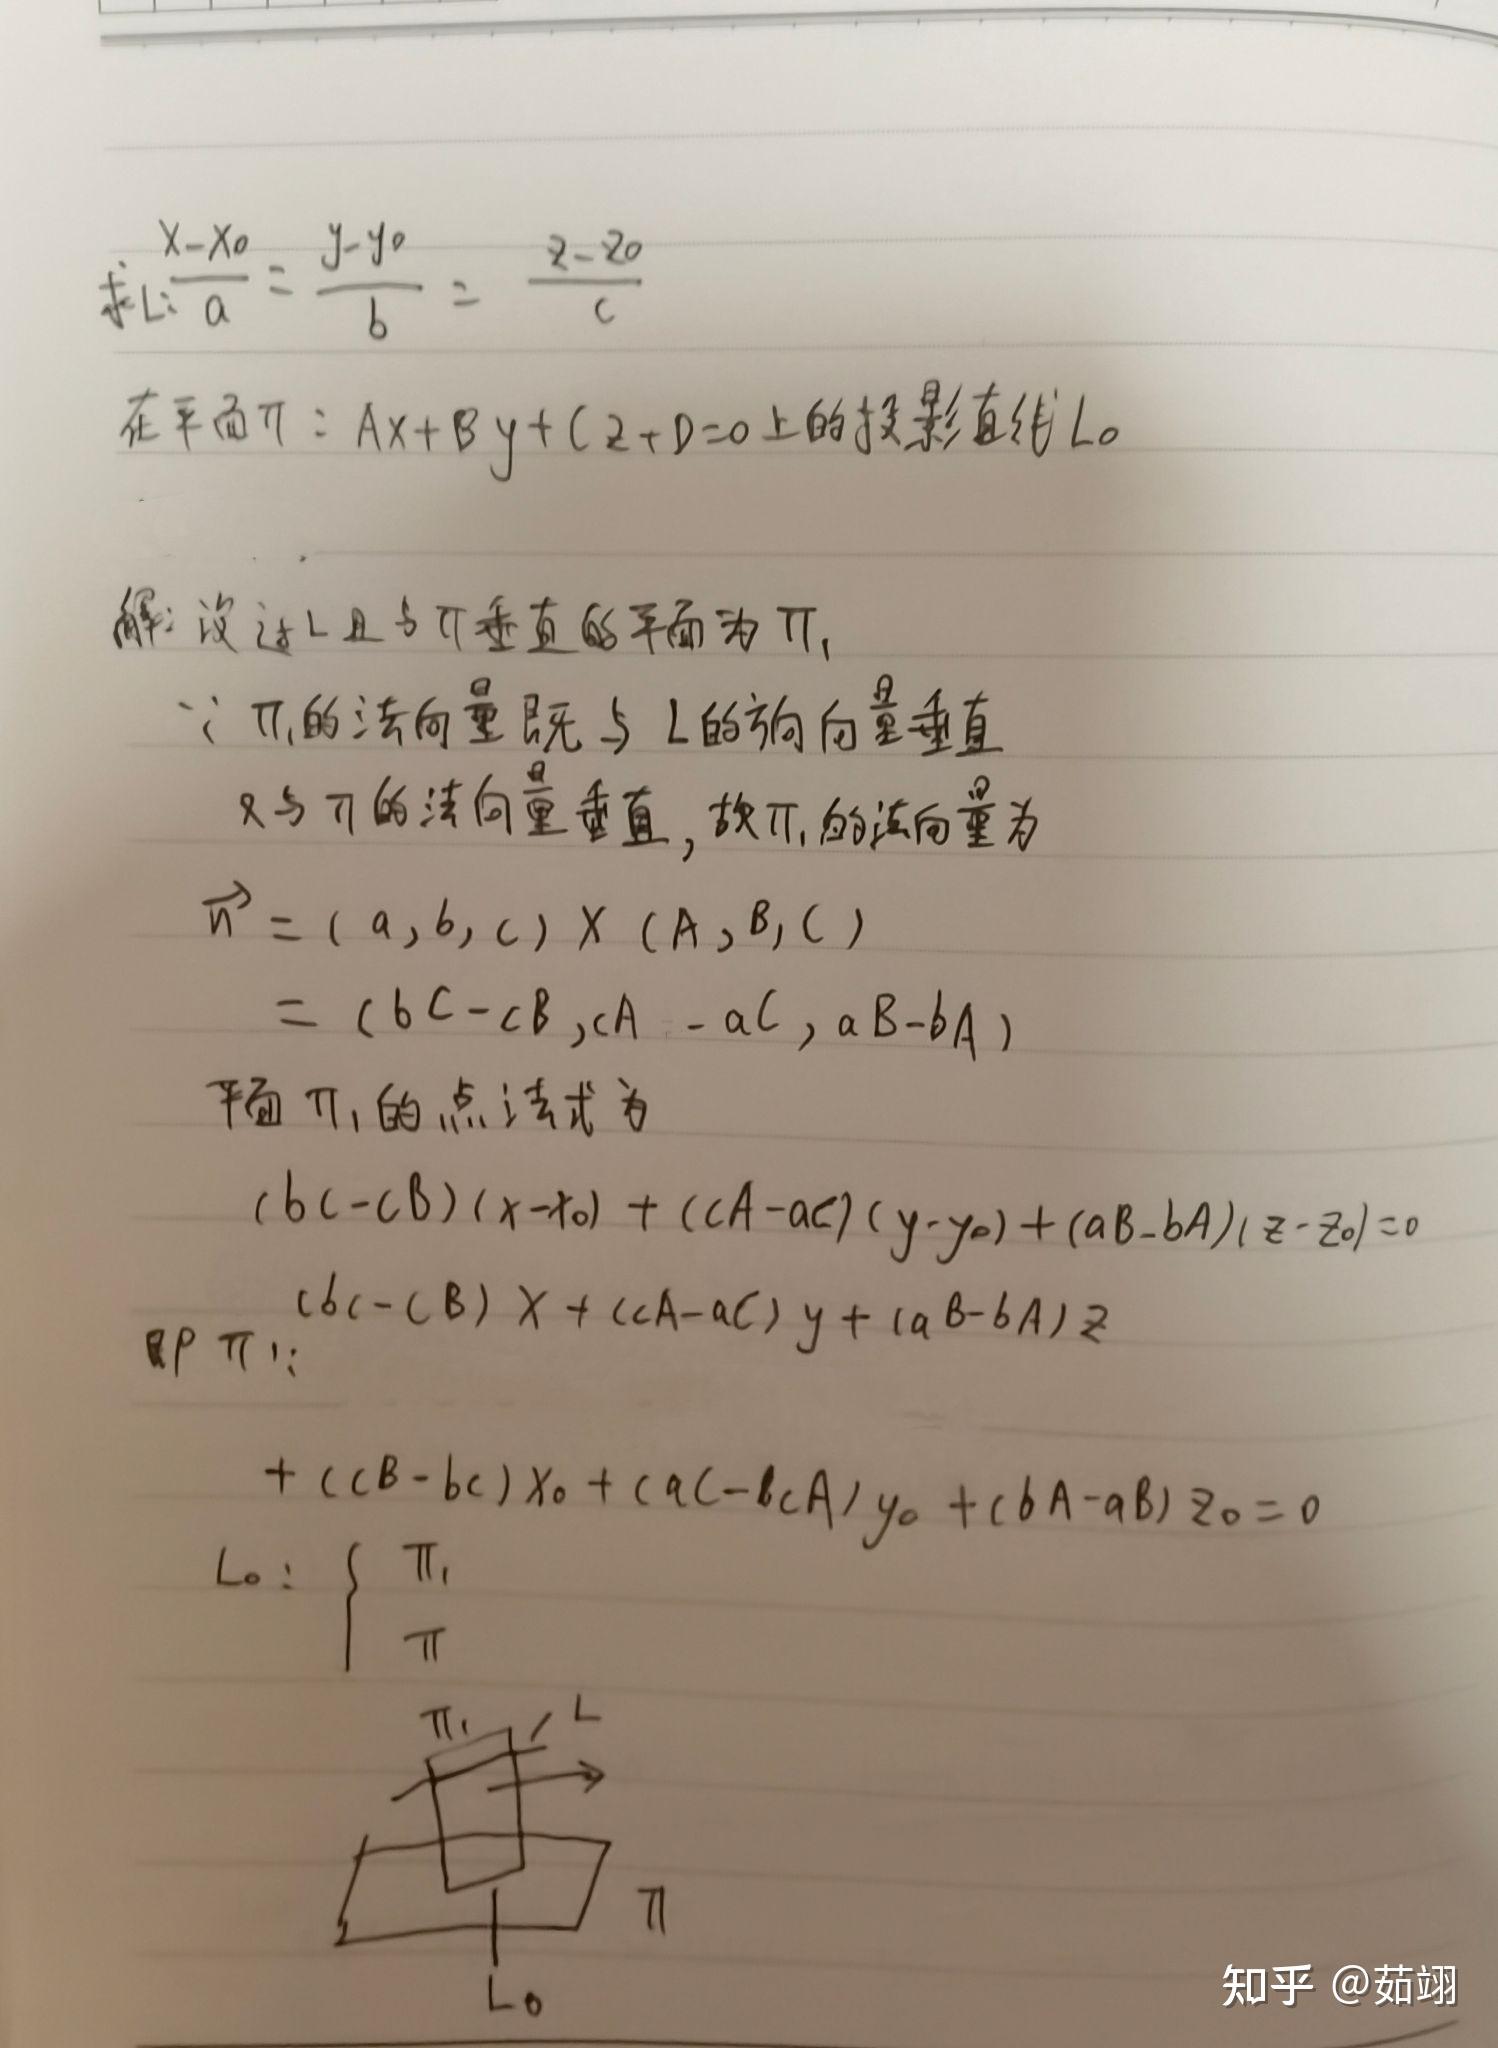 求L: (x-x₀)/a = (y-y₀)/b = (z-z₀)/c
在平面π: Ax+By+Cz+D=0上的投影直线L₀
解: 设过L且与π垂直的平面为π₁
∵ π₁的法向量既与L的方向向量垂直
又与π的法向量垂直,故π₁的法向量为
n⃗ = (a,b,c) × (A,B,C)
= (bC-cB,cA-aC,aB-bA)
平面π₁的点法式为
(bC-cB)(x-x₀)+(cA-aC)(y-y₀)+(aB-bA)(z-z₀)=0
即π₁: (bC-cB)x+(cA-aC)y+(aB-bA)z
+(cB-bC)x₀+(aC-cA)y₀+(bA-aB)z₀=0
L₀: { π₁
π
π₁ L
π
L₀
知乎 @茹翊